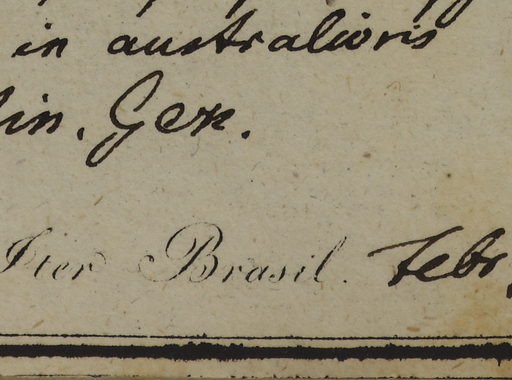 in australioris
lin. Gen.
Iter Brasil. Febr.